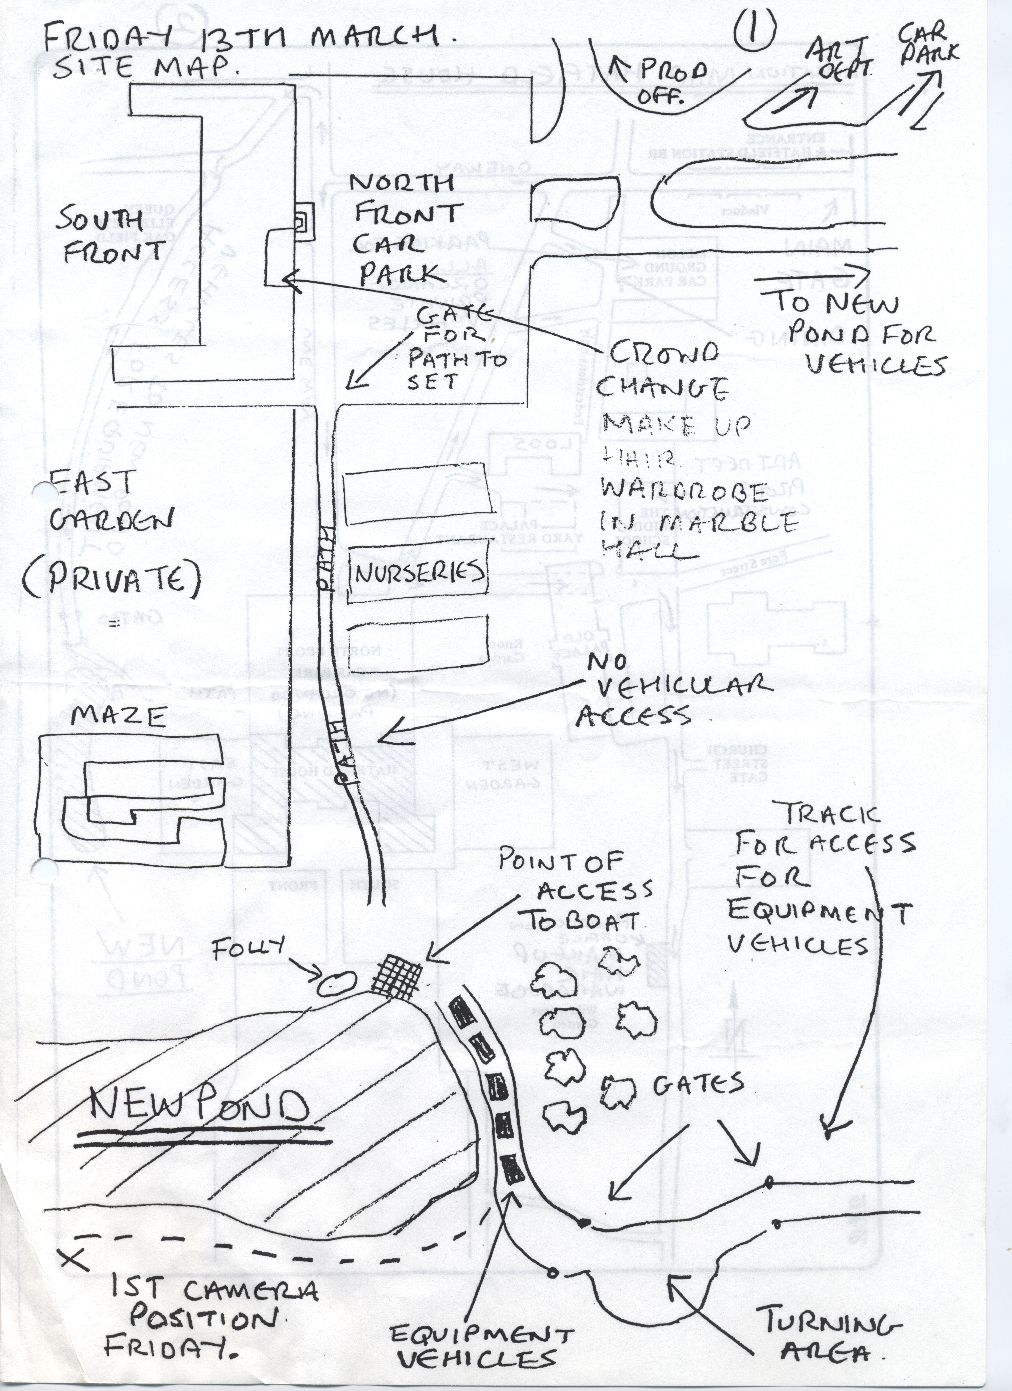 FRIDAY 13TH MARCH.
SITE MAP.
1
ART
DEPT.
CAR
PARK
PROD
OFF.
SOUTH
FRONT
NORTH
FRONT
CAR
PARK
GATE
FOR
PATH TO
SET
TO NEW
POND FOR
VEHICLES
CROWD
CHANGE
MAKE UP
HAIR
WARDROBE
IN MARBLE
HALL
EAST
GARDEN
(PRIVATE)
PATH
NURSERIES
NO
VEHICULAR
ACCESS.
MAZE
PATH
TRACK
FOR ACCESS
FOR
EQUIPMENT
VEHICLES
POINT OF
ACCESS
TO BOAT.
FOLLY
NEW POND
GATES
1ST CAMERA
POSITION.
FRIDAY.
EQUIPMENT
VEHICLES
TURNING
AREA.